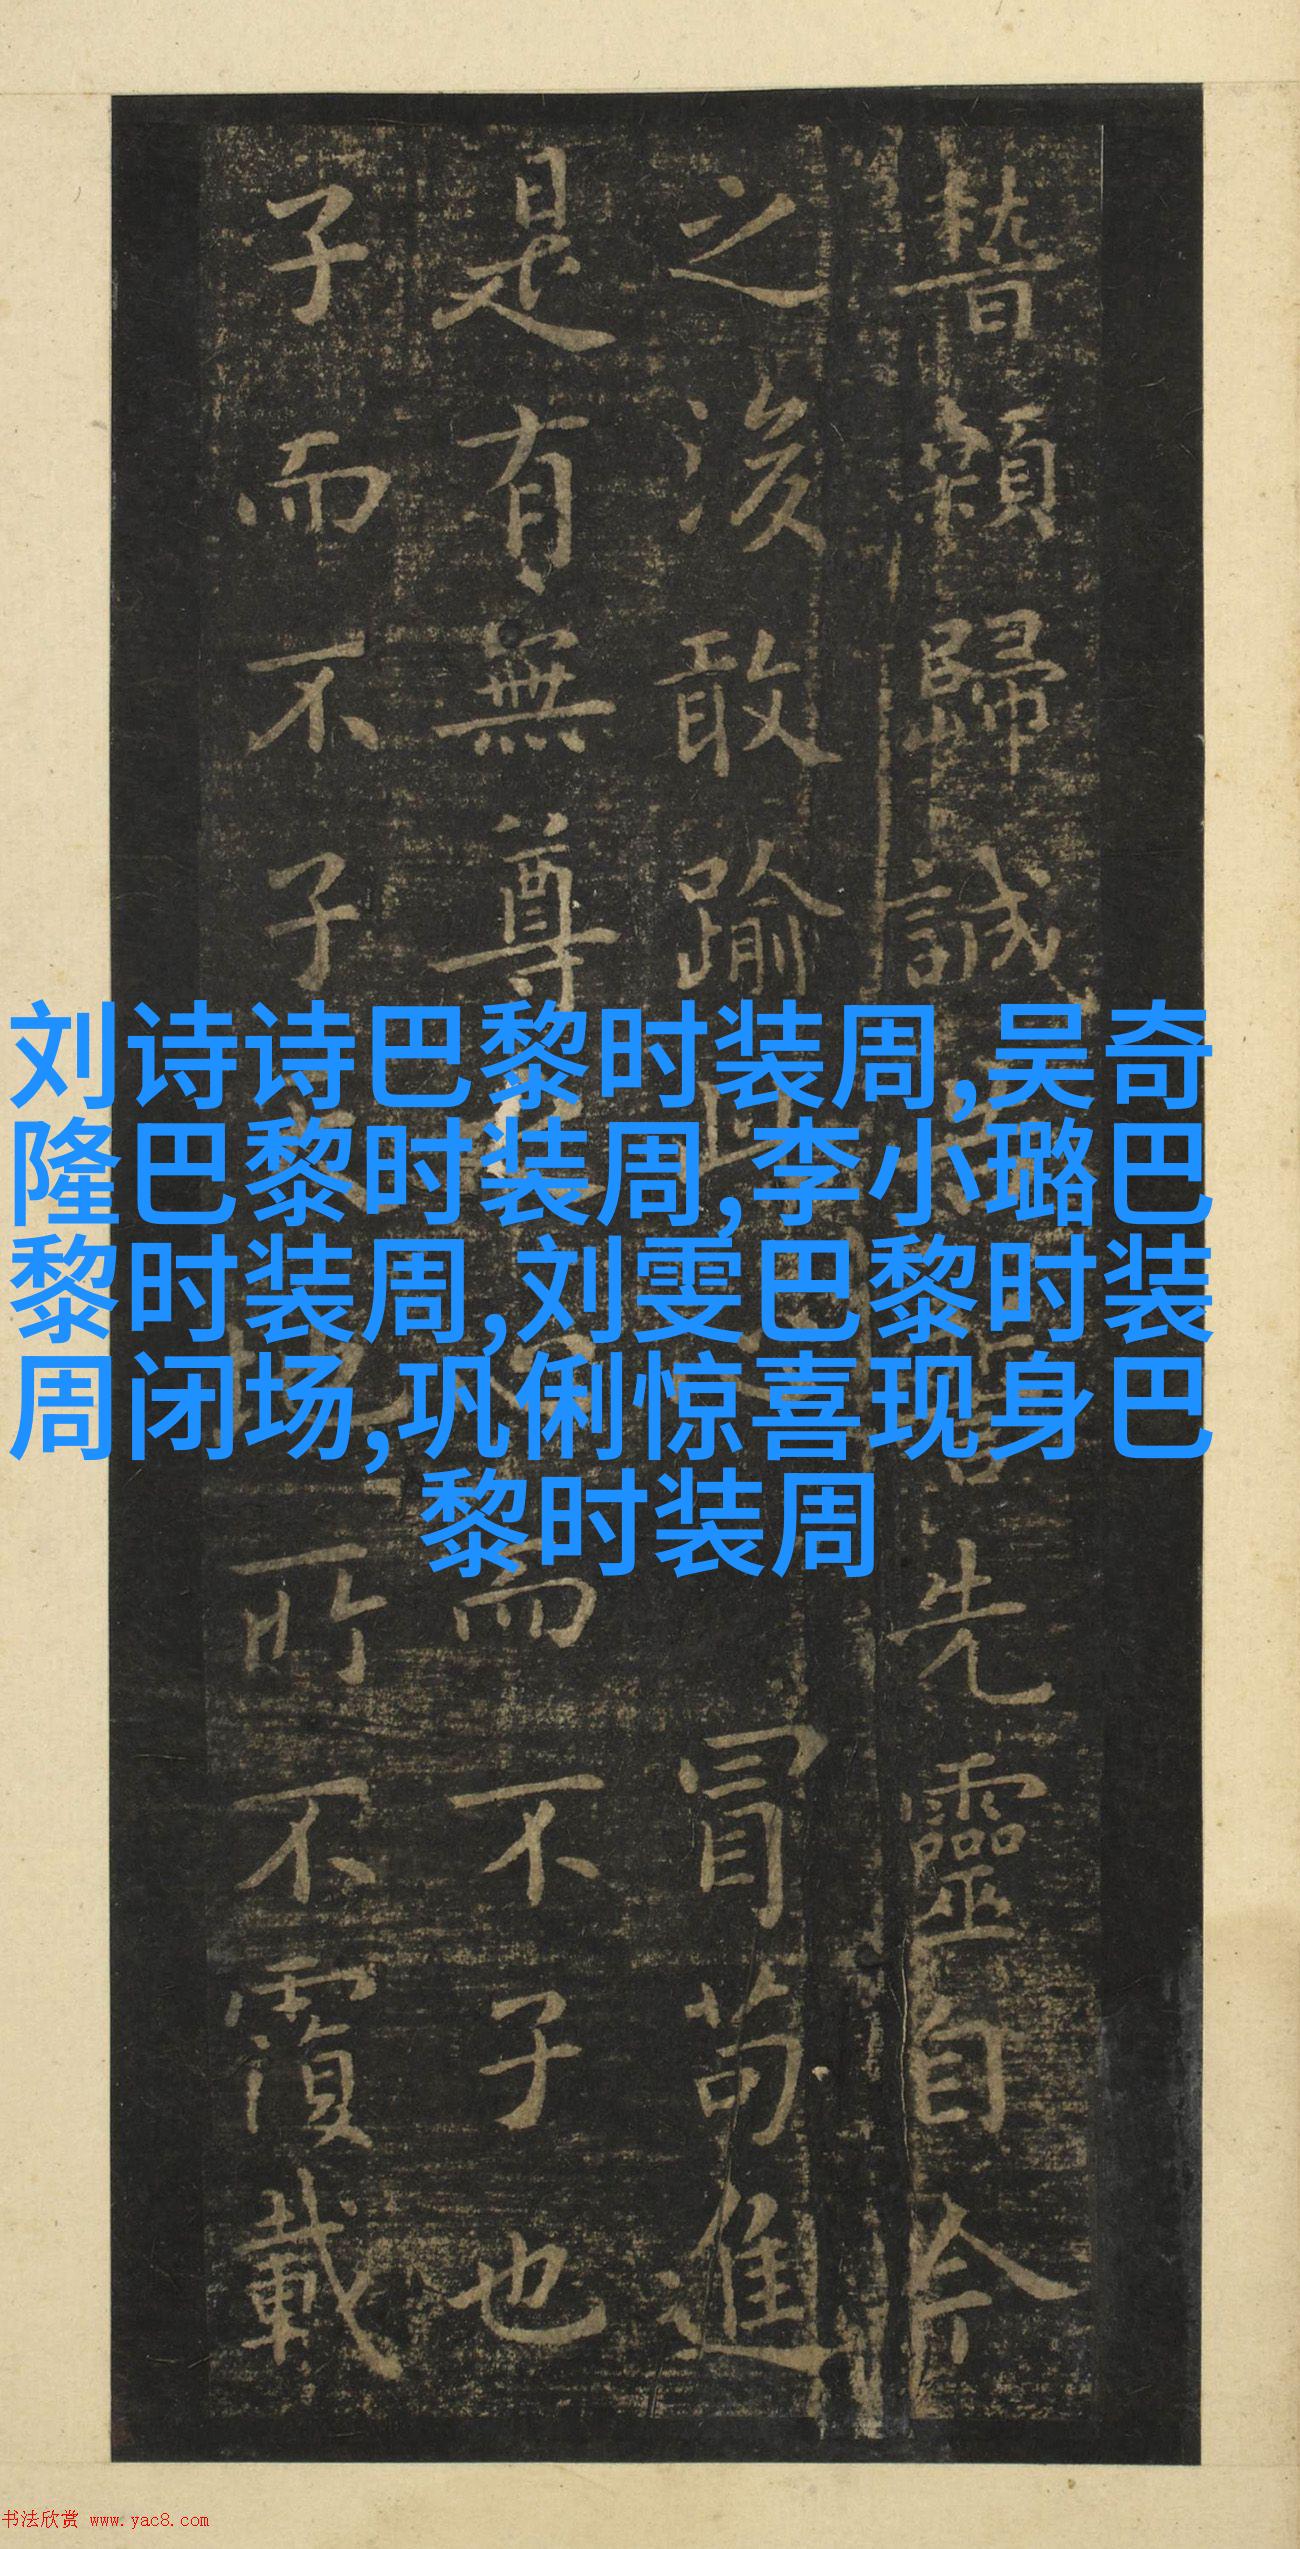 稽顙歸誠先靈自今
之後敢踰冒苟進
是有無尊而不子也
子而不子所不覆載
刘诗诗巴黎时装周,吴奇
隆巴黎时装周,李小璐巴
黎时装周,刘雯巴黎时装
周闭场,巩俐惊喜现身巴
黎时装周
书法欣赏 www.yac8.com